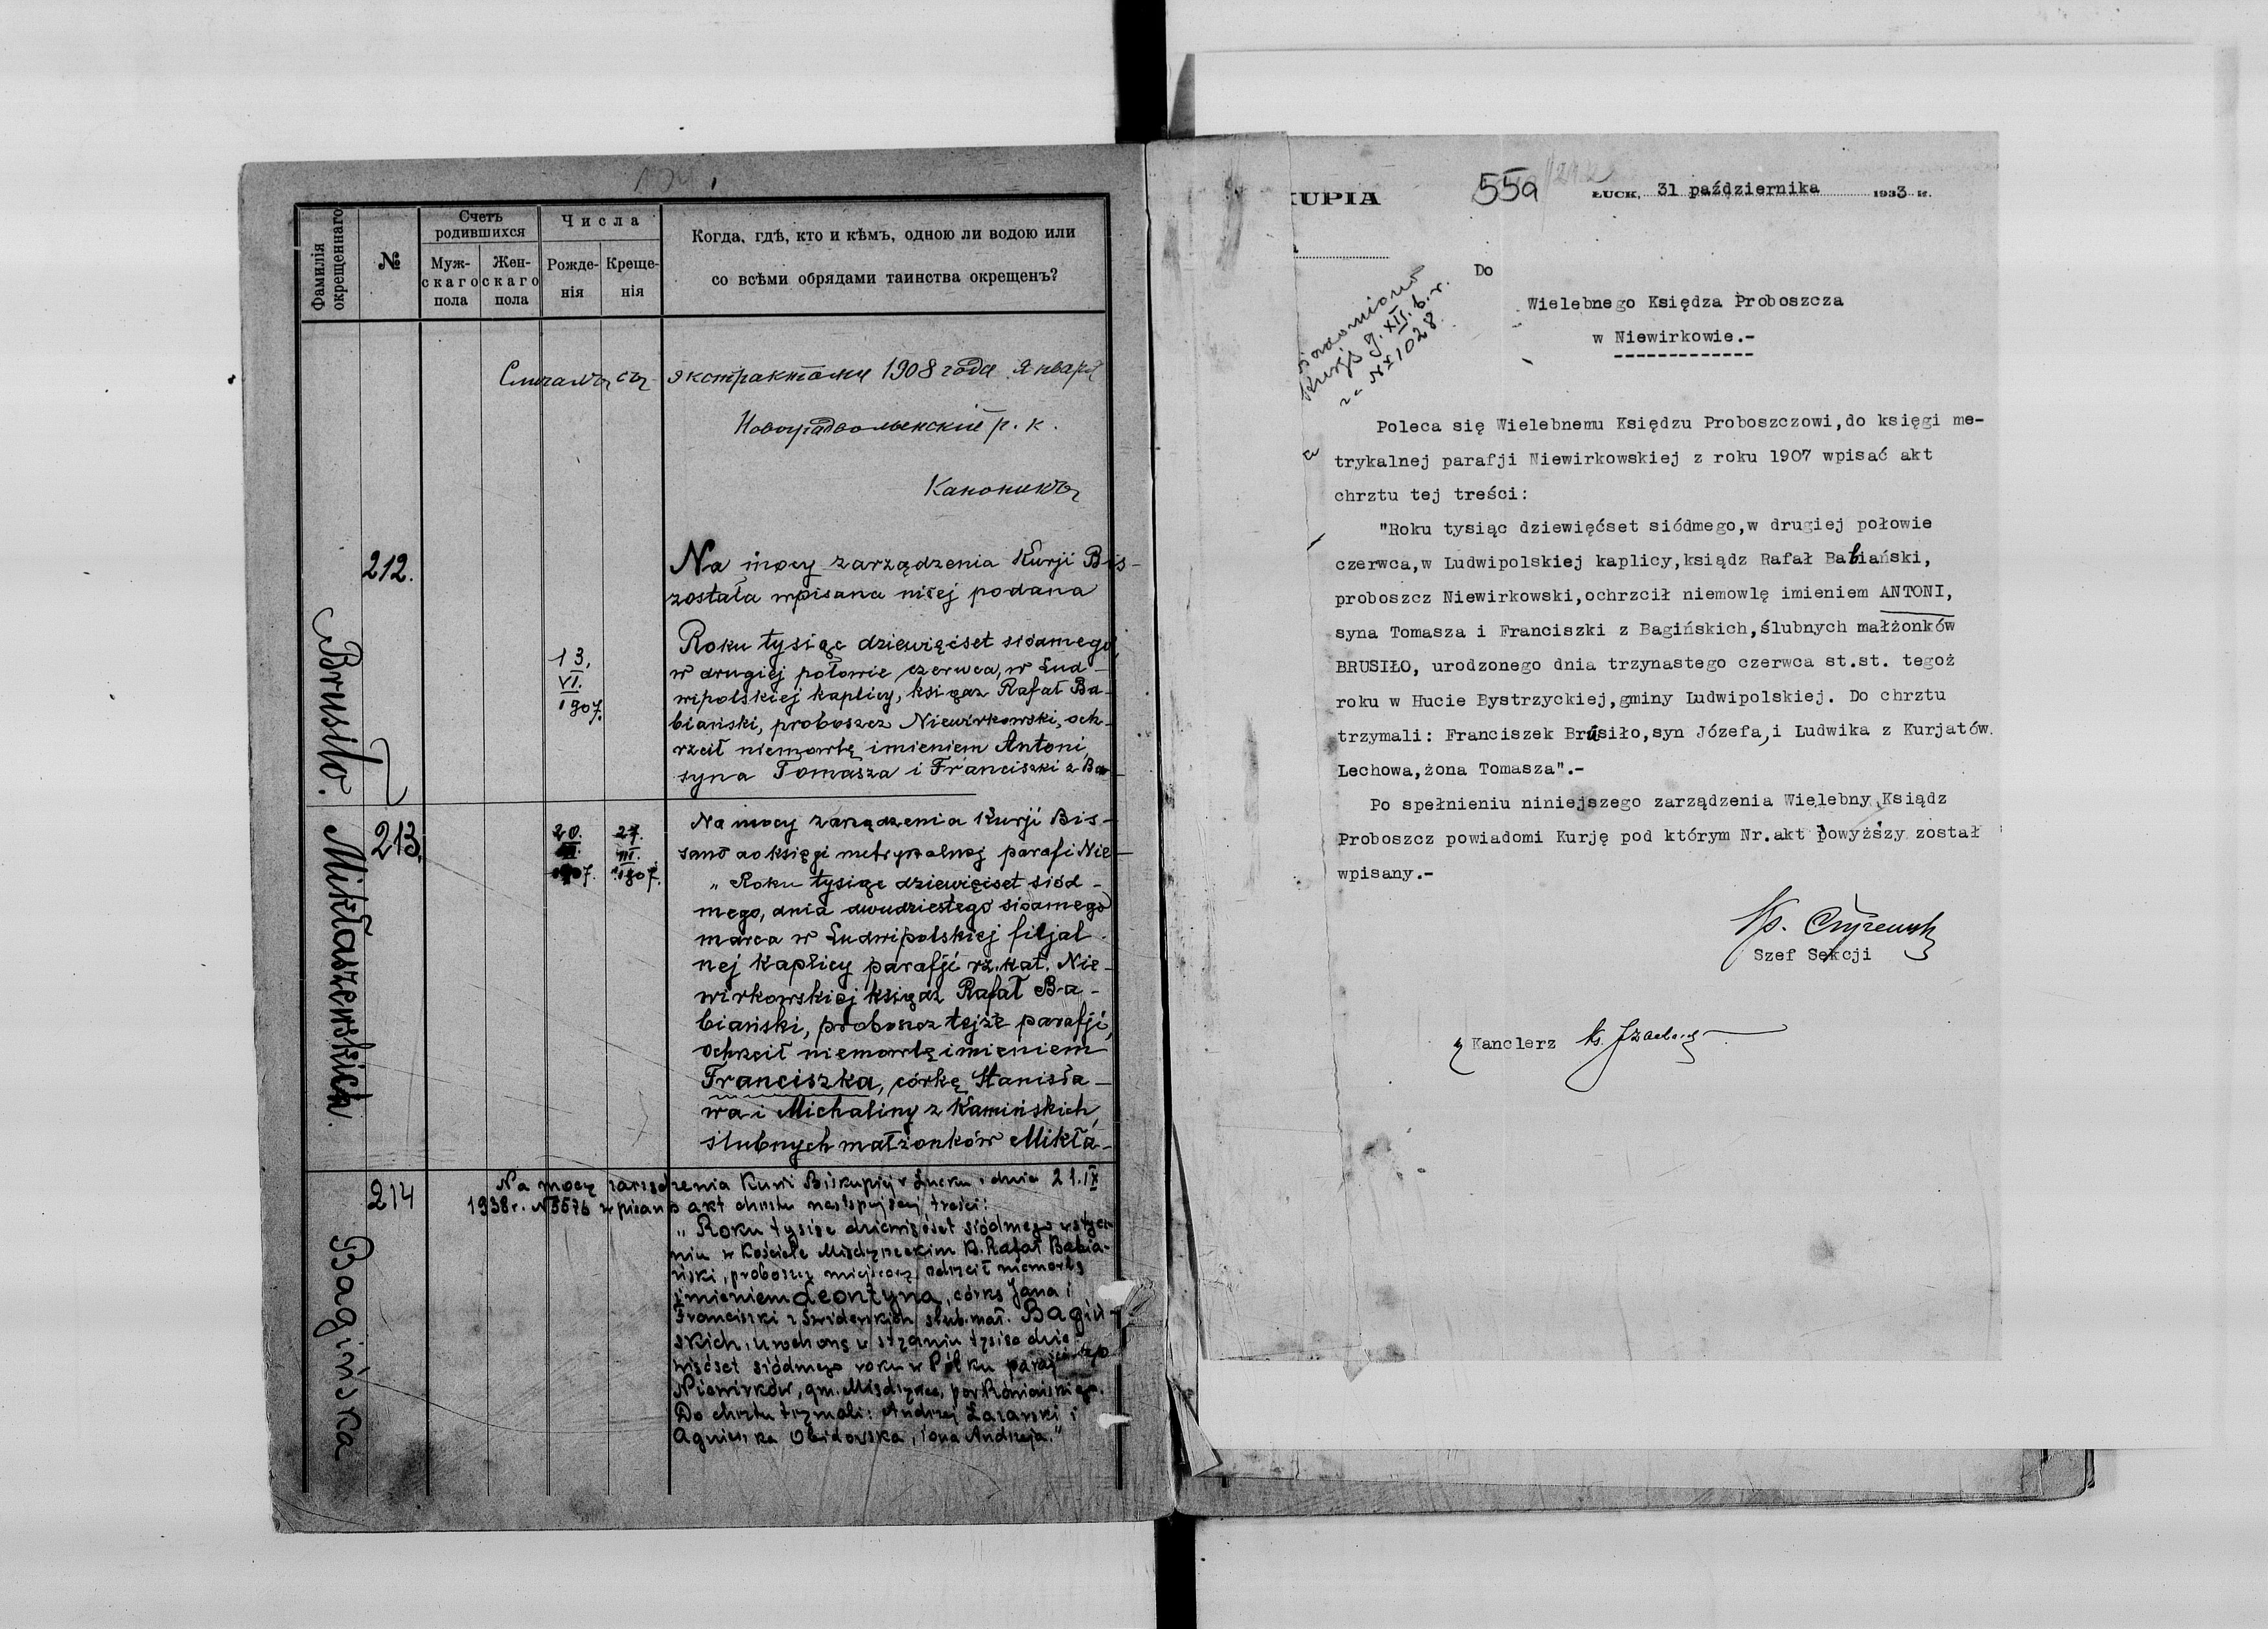 Фамилія окрещеннаго
№
Счетъ родившихся
Муж-скаго пола
Жен-скаго пола
Числа
Рожде-нія
Креще-нія
Когда, гдѣ, кто и кѣмъ, одною ли водою или
со всѣми обрядами таинства окрещенъ?
экстрактомъ 1908 года Января
р. к.
Каноникъ
212.
Brusiło.
13.
VI.
1907.
Na mocy zarządzenia Kurji Bis-
została wpisana niżej podana
Roku tysiąc dziewięćset siódmego,
w drugiej połowie czerwca, w Lud-
wipolskiej kaplicy, ksiądz Rafał Ba-
biański, proboszcz Niewirkowski, och-
rzcił niemowlę imieniem Antoni,
syna Tomasza i Franciszki z Ba-
213.
Mikłaszewskich.
20.
III.
1907.
27.
III.
1907.
Na mocy zarządzenia Kurji Bis-
sano do księgi metrykalnej parafi Nie-
„Roku tysiąc dziewięćset siód-
mego, dnia dwudziestego siódmego
marca w Ludwipolskiej filjal-
nej kaplicy parafji rz. kat. Nie-
wirkowskiej ksiądz Rafał Ba-
biański, proboszcz tejże parafji,
ochrzcił niemowlę imieniem
Franciszka, córkę Stanisła-
wa i Michaliny z Kamińskich,
ślubnych małżonków Mikła-
214
Bagińska
Na mocy zarządzenia Kurii Biskupiej w Łucku z dnia 21.IX
1938 r. N 5576 wpisano akt chrztu następującej treści:
„Roku tysiąc dziewięćset siódmego w stycz-
niu w Kościele Międzyrzeckim ks. Rafał Babia-
ński, proboszcz miejscowy ochrzcił niemowlę
imieniem Leontyna, córkę Jana i
Franciszki z Świderskich ślub. mał. Bagiń-
skich, urodzoną w styczniu tysiąc dzie-
więćset siódmego roku w Pólku parafii
Niewirków, gm. Międzyrzec, pow Rówieńskiego.
Do chrztu trzymali: Andrzej Łazarski i
Agnieszka Obidowska, żona Andrzeja."
KUPIA
559
ŁUCK, 31 października 1933 R.
Kurję 9.XII.b.r.
za № 1028.
Do
Wielebnego Księdza Proboszcza
w Niewirkowie.-
Poleca się Wielebnemu Księdzu Proboszczowi,do księgi me-
trykalnej parafji Niewirkowskiej z roku 1907 wpisać akt
chrztu tej treści:
"Roku tysiąc dziewięćset siódmego,w drugiej połowie
czerwca,w Ludwipolskiej kaplicy,ksiądz Rafał Babiański,
proboszcz Niewirkowski,ochrzcił niemowlę imieniem ANTONI,
syna Tomasza i Franciszki z Bagińskich,ślubnych małżonków
BRUSIŁO, urodzonego dnia trzynastego czerwca st.st. tegoż
roku w Hucie Bystrzyckiej,gminy Ludwipolskiej. Do chrztu
trzymali: Franciszek Brusiło,syn Józefa,i Ludwika z Kurjatów
Lechowa,żona Tomasza".-
Po spełnieniu niniejszego zarządzenia Wielebny Ksiądz
Proboszcz powiadomi Kurję pod którym Nr.akt powyższy został
wpisany.-
Szef Sekcji
Kanclerz